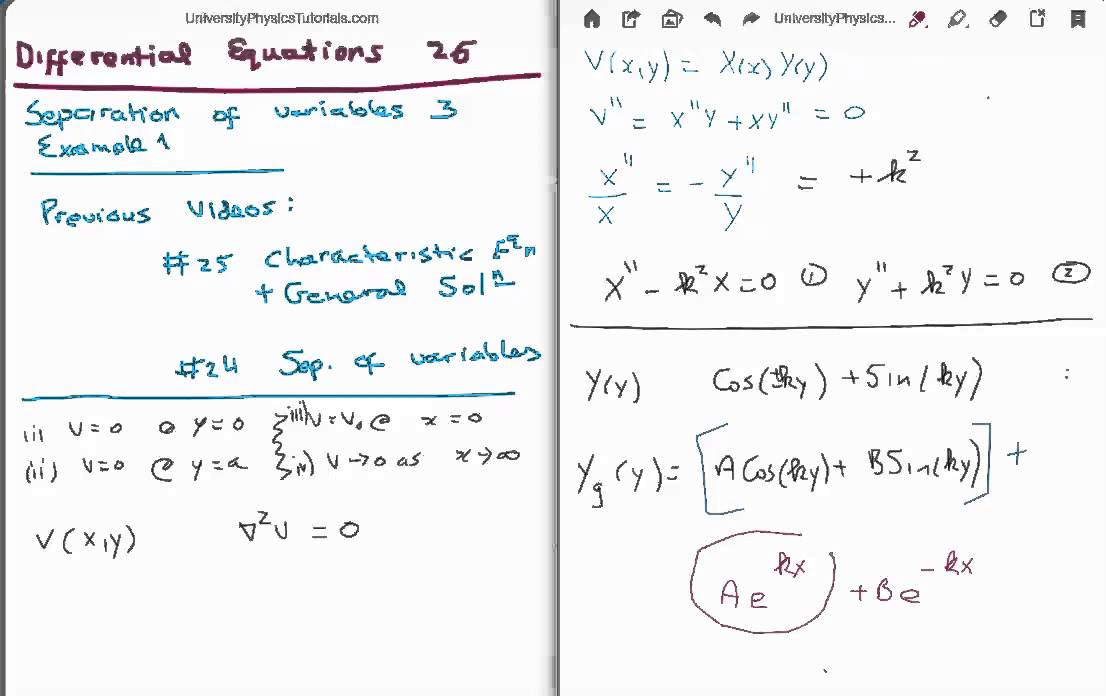 UniversityPhysicsTutorials.com
Differential Equations 26
Separation of variables 3
Example 1
Previous Videos:
#25 Characteristic Eqn
+ General Solⁿ
#24 Sep. of variables
(i) V=0 @ y=0 } (iii) V=V₀ @ x=0
(ii) V=0 @ y=a } (iv) V→0 as x→∞
V(x,y) ∇²V = 0
UniversityPhysics...
V(x,y) = X(x) Y(y)
V'' = X''Y + XY'' = 0
X''/X = - Y''/Y = +k²
X'' - k²X = 0 ① Y'' + k²Y = 0 ②
Y(y) Cos(ky) + Sin(ky) :
Yg(y) = [A Cos(ky) + B Sin(ky)] +
Ae^kx + Be^-kx